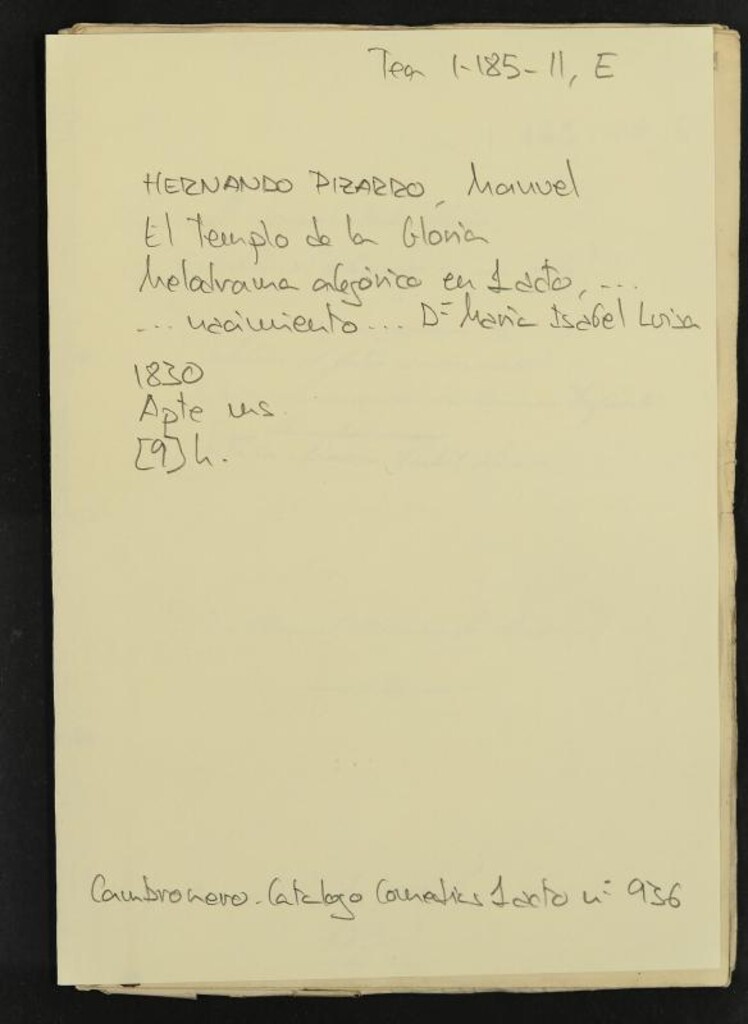 Tea 1-185-11, E
HERNANDO PIZARRO, Manuel
El Templo de la Gloria
Melodrama alegórico en 1 acto, ...
... nacimiento ... Dª María Isabel Luisa
1830
Apte ms.
[9] h.
Cambronero. Catálogo Comedias 1 acto nº 936